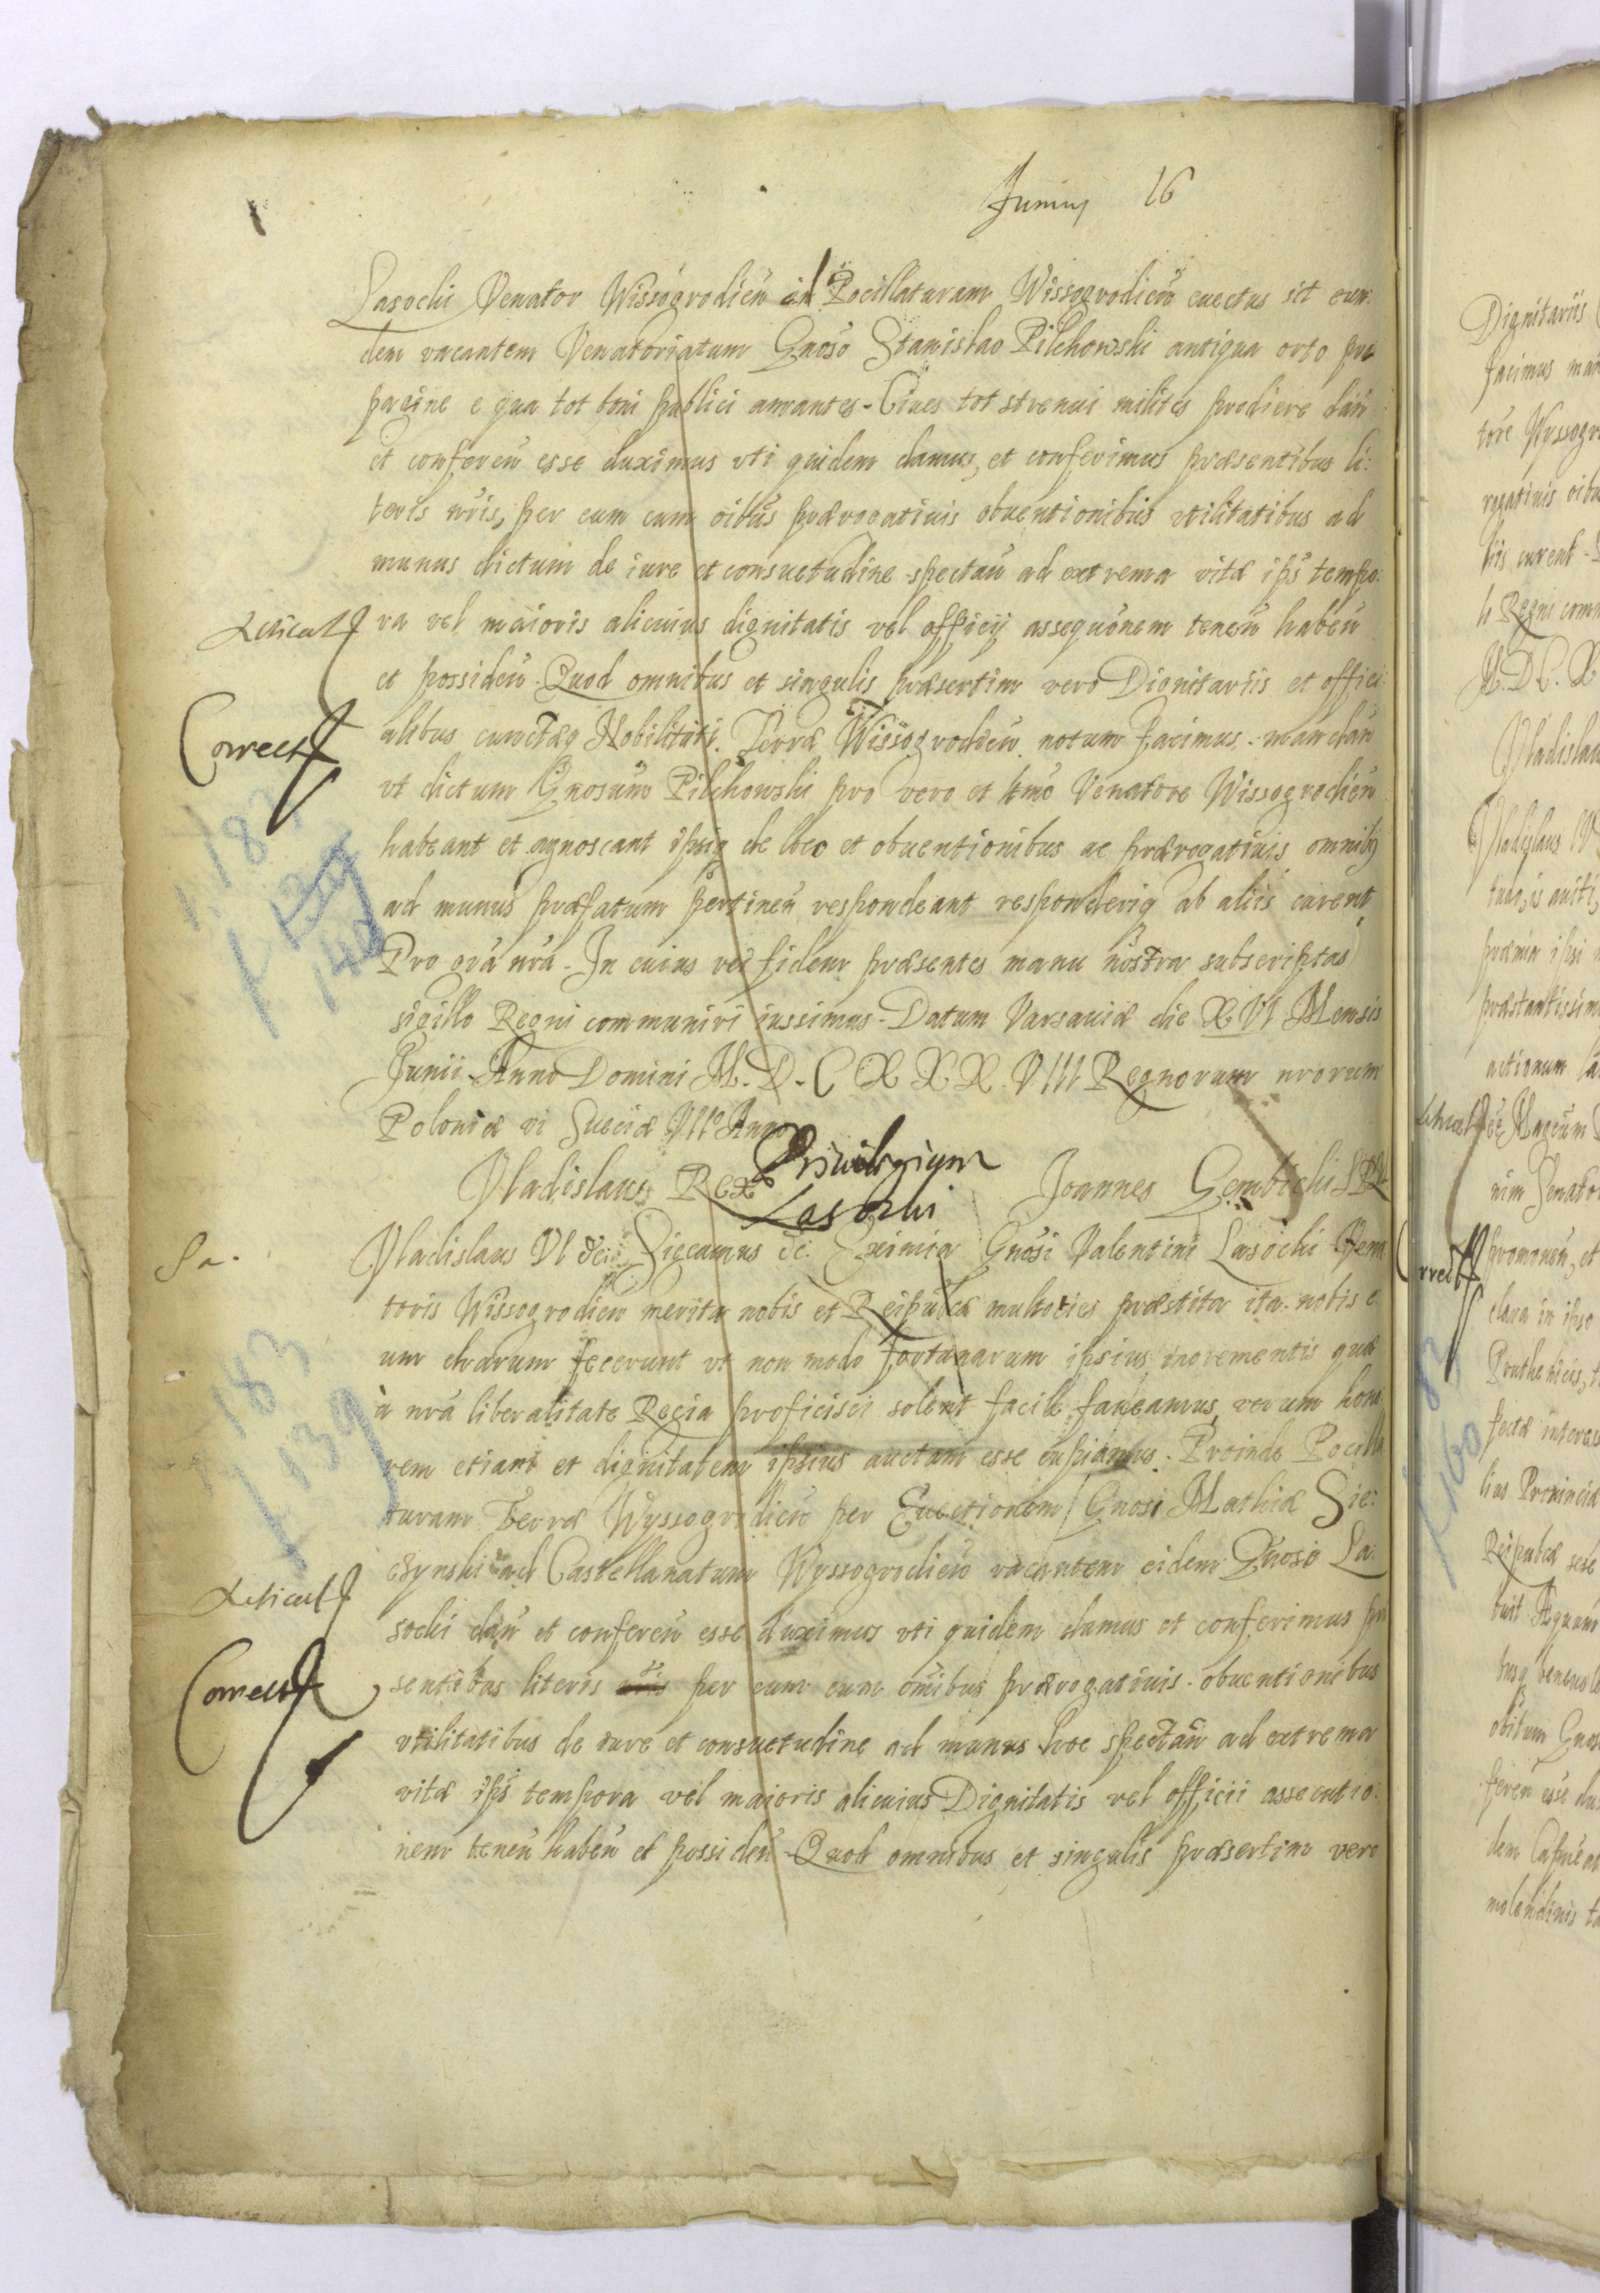 Junius 16
Lasocki Venator Wissogrodień ad Pocillaturam Wissogrodień euectus sit eun:
dem vacantem Venatoriatum Gnoso Stanislao Pilchowski antiqua orto pro
pagine e qua tot boni publici amantes Ciues tot strenui milites prodiere dań
et confereń esse duximus vti quidem damus, et conferimus præsentibus li:
teris nris, per eum cum oibus prærogatiuis obuentionibus vtilitatibus ad
munus dictum de iure et consuetudine spectań ad extrema vitæ ips tempo:
ra vel maioris alicuius dignitatis vel officij assequõnem teneń habeń
et possideń. Quod omnibus et singulis præsertim vero Dignitariis et offici:
alibus cunctæq Nobilitati Terræ Wissogrodień notum facimus. mandań
vt dictum Gnosum Pilchowski pro vero et ltmo Venatore Wissogrodień
habeant et agnoscant ipsiq de loco et obuentionibus ac prærogatiuis omnibq
ad munus præfatum pertineń respondeant responderiq ab aliis curent
Pro gra nra. In cuius rei fidem præsentes manu nostra subscriptas
sigillo Regni communiri iussimus. Datum Varsauiæ die XVI Mensis
Junii Anno Domini M.D.C XXX.VIII Regnorum nrorum
Poloniæ vi Sueciæ VII Anno
Vladislaus Rex Joannes Gembicki SRR
Priuilegium
Lasocki
Vladislaus VI &c. Significamus &c. Eximia Gnosi Valentini Lasocki Vena
toris Wissogrodień merita nobis et Reipublcæ multoties præstita ita nobis e
um charum fecerunt vt non modo fortunarum ipsius incrementis quæ
à nrâ liberalitate Regia proficisci solent facile faueamus, verum hono
rem etiam et dignitatem ipsius auctam esse cupiamus. Proinde Pocilla
turam Terræ Wyssogrodień per Euectionem Gnosi Mathiæ Sie:
czynski ad Castellanatum Wyssogrodień vacantem eidem Gnoso La:
socki dań et conferen esse duximus vti quidem damus et conferimus præ
sentibus literis nris per eum cum omibus prærogatiuis obuentionibus
vtilitatibus de iure et consuetudine ad munus hoc spectań ad extrema
vitæ ips tempora vel maioris alicuius Dignitatis vel officii assecutio:
nem teneń habeń et possideń Quod omnibus et singulis præsertim vero
Correct
183
139
140
183
139
Correct
Dignitariis
facimus man
tore Wyssogr
rogatiuis oibu
liis curent
li Regni comm
M.D.C.X
Vladislau
Vladislaus
præmia ipsi
præstantissim
actionum
Magcum
nim Senato
promoueń, et
clara in ipso
fectæ interes
lius Prouinciæ
Reipubcæ sese
obitum Gnos
fereń esse du
molendinis